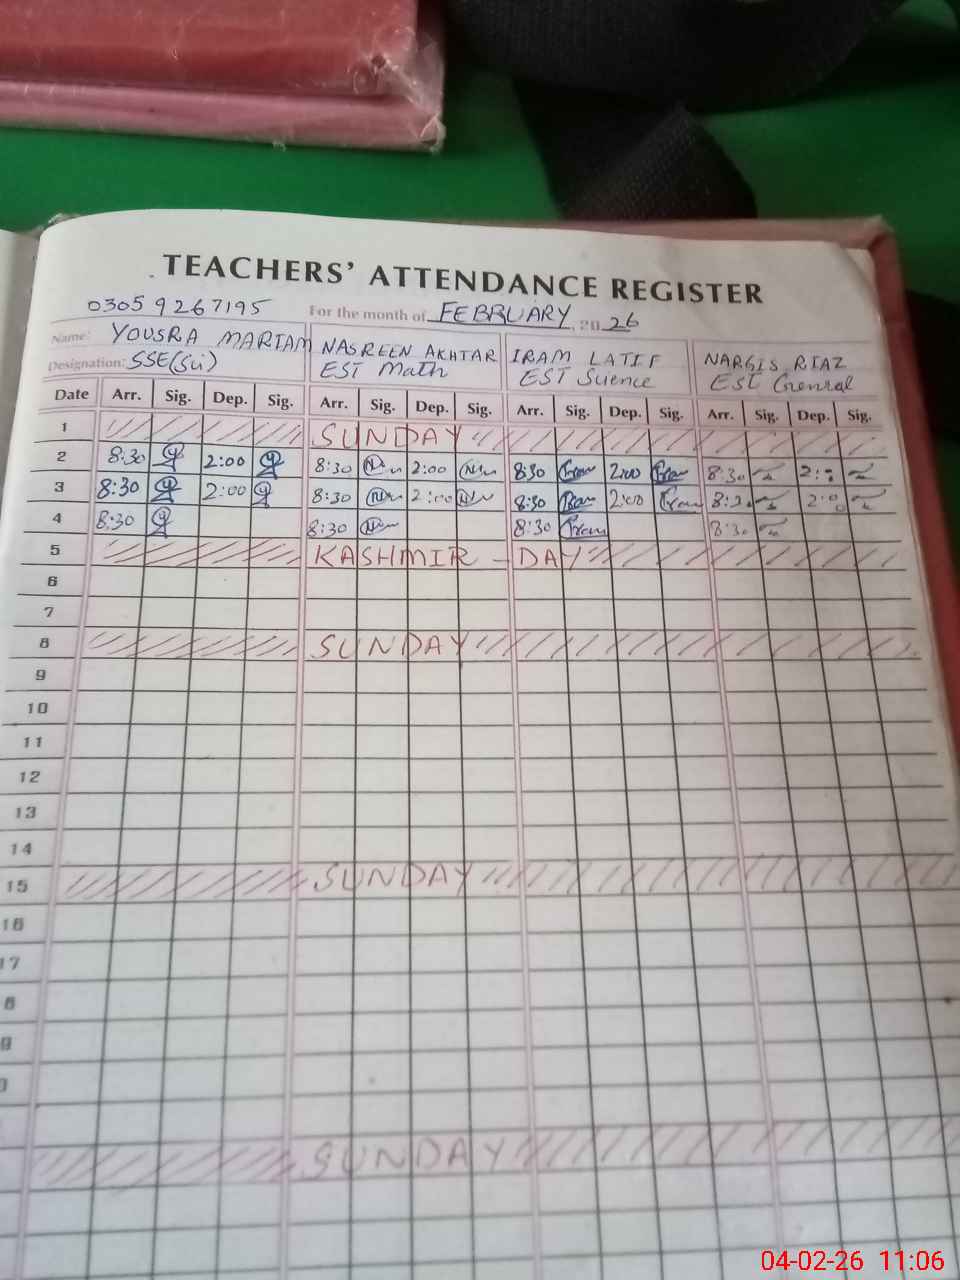 TEACHERS' ATTENDANCE REGISTER
03059267195 For the month of FEBRUARY, 2026
Name: YOUSRA MARIAM NASREEN AKHTAR IRAM LATIF NARGIS RIAZ
Designation: SSE(Sci) EST Math EST Science EST Genral
Date Arr. Sig. Dep. Sig. Arr. Sig. Dep. Sig. Arr. Sig. Dep. Sig. Arr. Sig. Dep. Sig.
1 SUNDAY
2 8:30 2:00 8:30 2:00 8:30 2:00 8:30
3 8:30 2:00 8:30 2:00 8:30 2:00 2:0
4 8:30 8:30 8:30 8:30
5 KASHMIR - DAY
6
7
8 SUNDAY
9
10
11
12
13
14
15 SUNDAY
16
17
8
9
SUNDAY
04-02-26 11:06